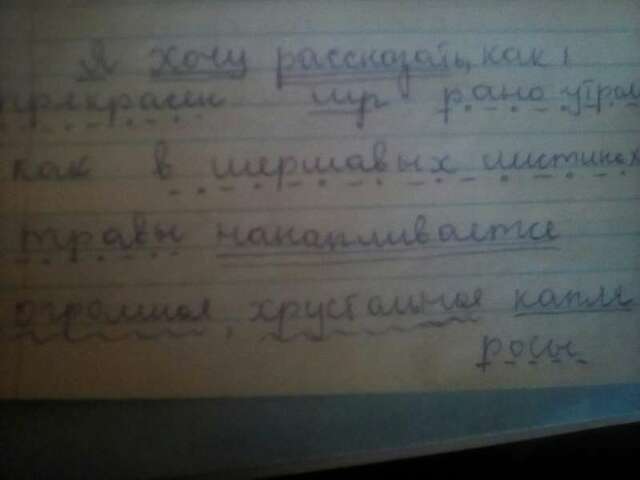 Я хочу рассказать, как
прекрасен мир рано утром
как в шершавых листинах
травы накапливается
огромная, хрустальная капля
росы